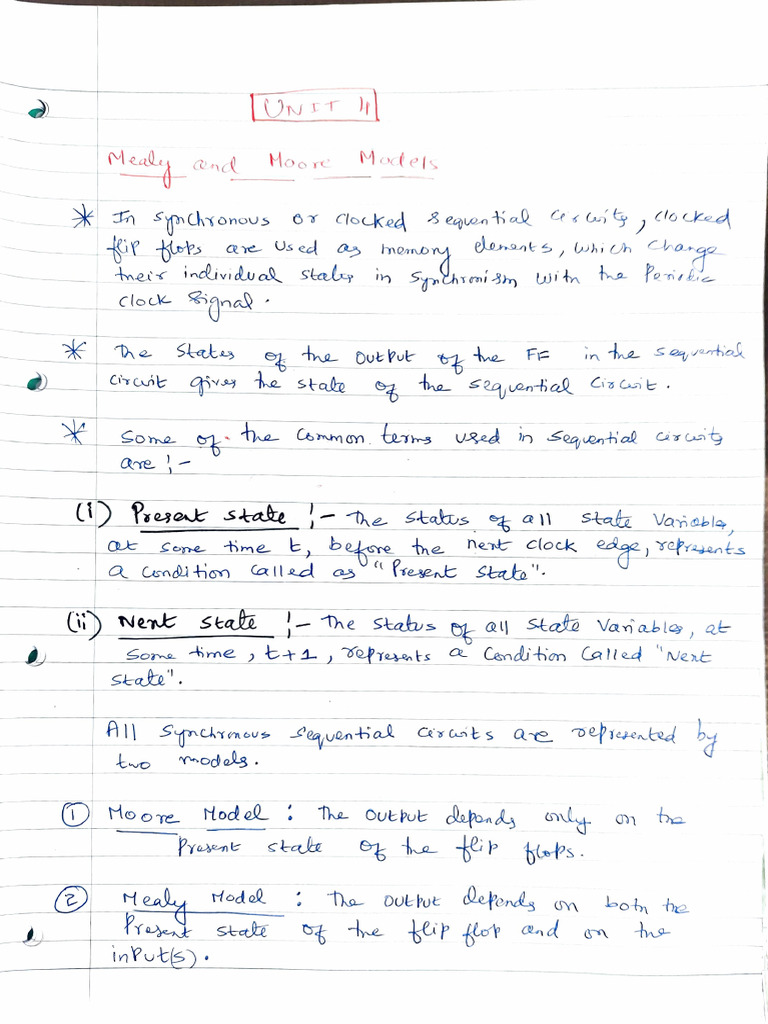 UNIT 4
Mealy and Moore Models
* In synchronous or clocked sequential circuits, clocked
flip flops are used as memory elements, which change
their individual states in synchronism with the Periodic
clock signal.
* The states of the output of the FF in the sequential
circuit gives the state of the sequential circuit.
* Some of the common terms used in sequential circuits
are :-
(i) Present state :- The status of all state variables,
at some time t, before the next clock edge, represents
a condition called as "Present state".
(ii) Next state :- The status of all state variables, at
some time, t+1, represents a condition called "Next
state".
All synchronous sequential circuits are represented by
two models.
1 Moore Model : The output depends only on the
Present state of the flip flops.
2 Mealy Model : The output depends on both the
Present state of the flip flop and on the
input(s).